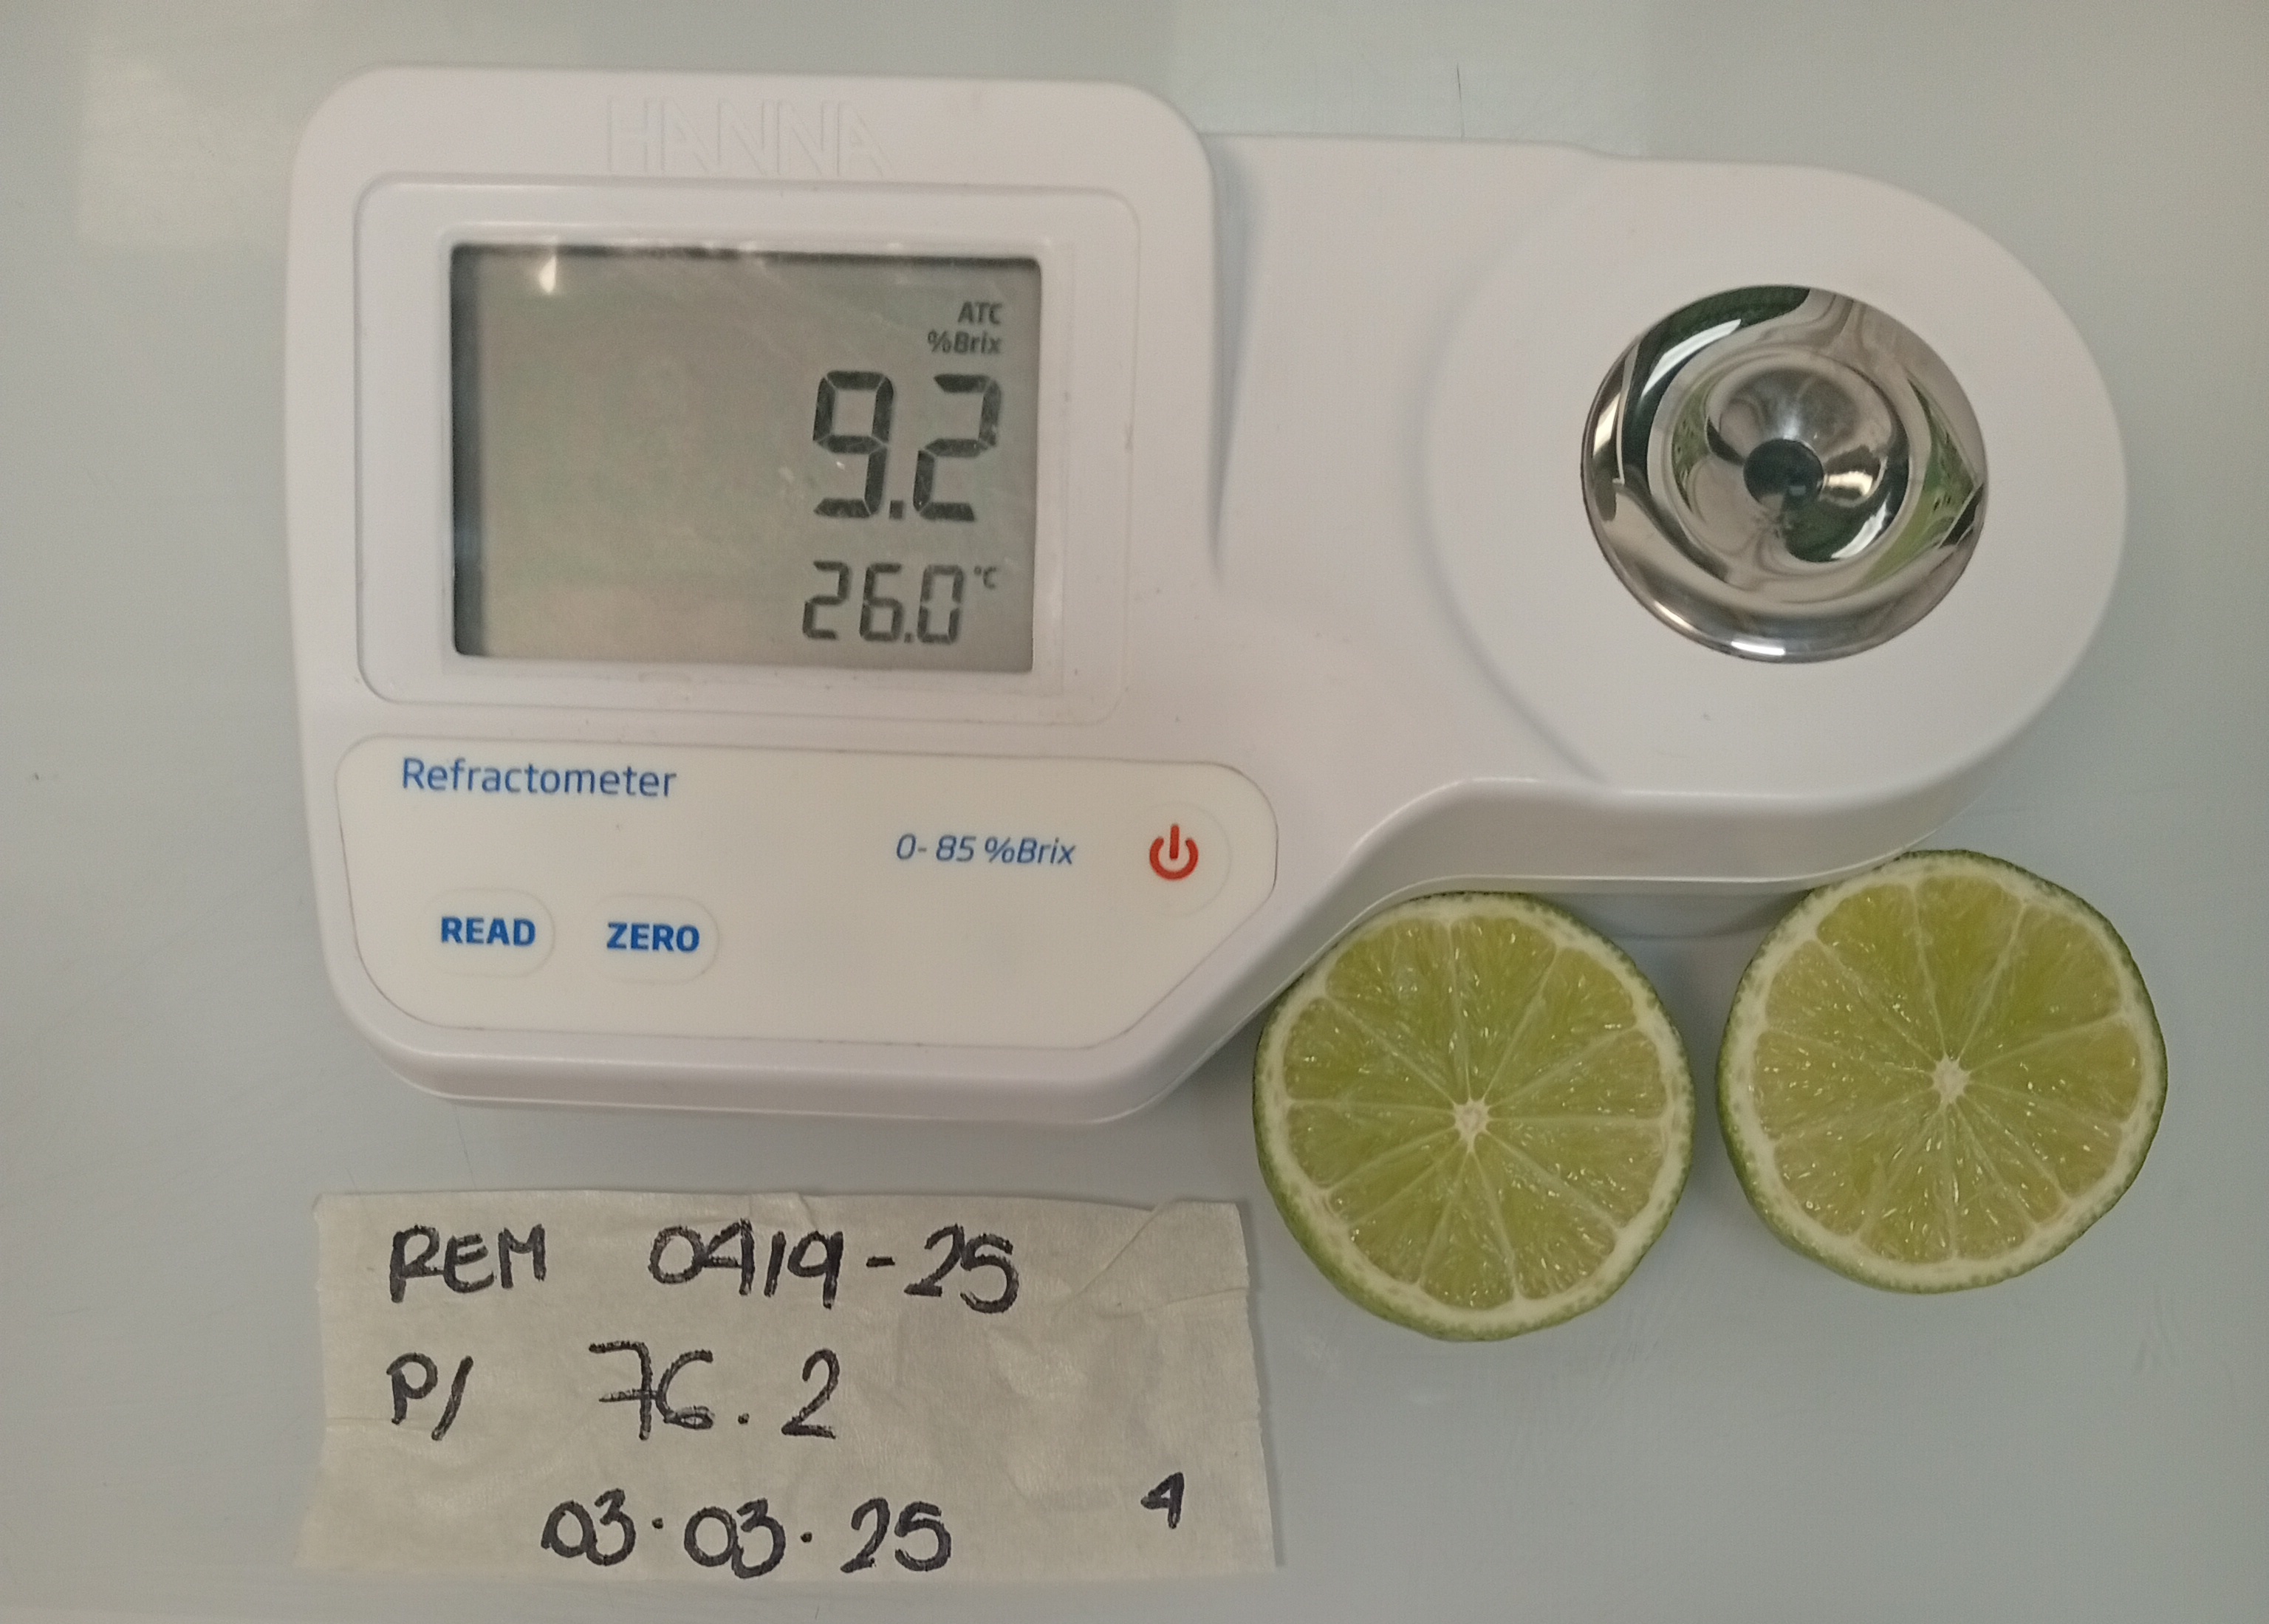 HANNA
ATC
%Brix
9.2
26.0 °C
Refractometer
0-85 %Brix
READ ZERO
REM 0419-25
P/ 76.2
03.03.25 4